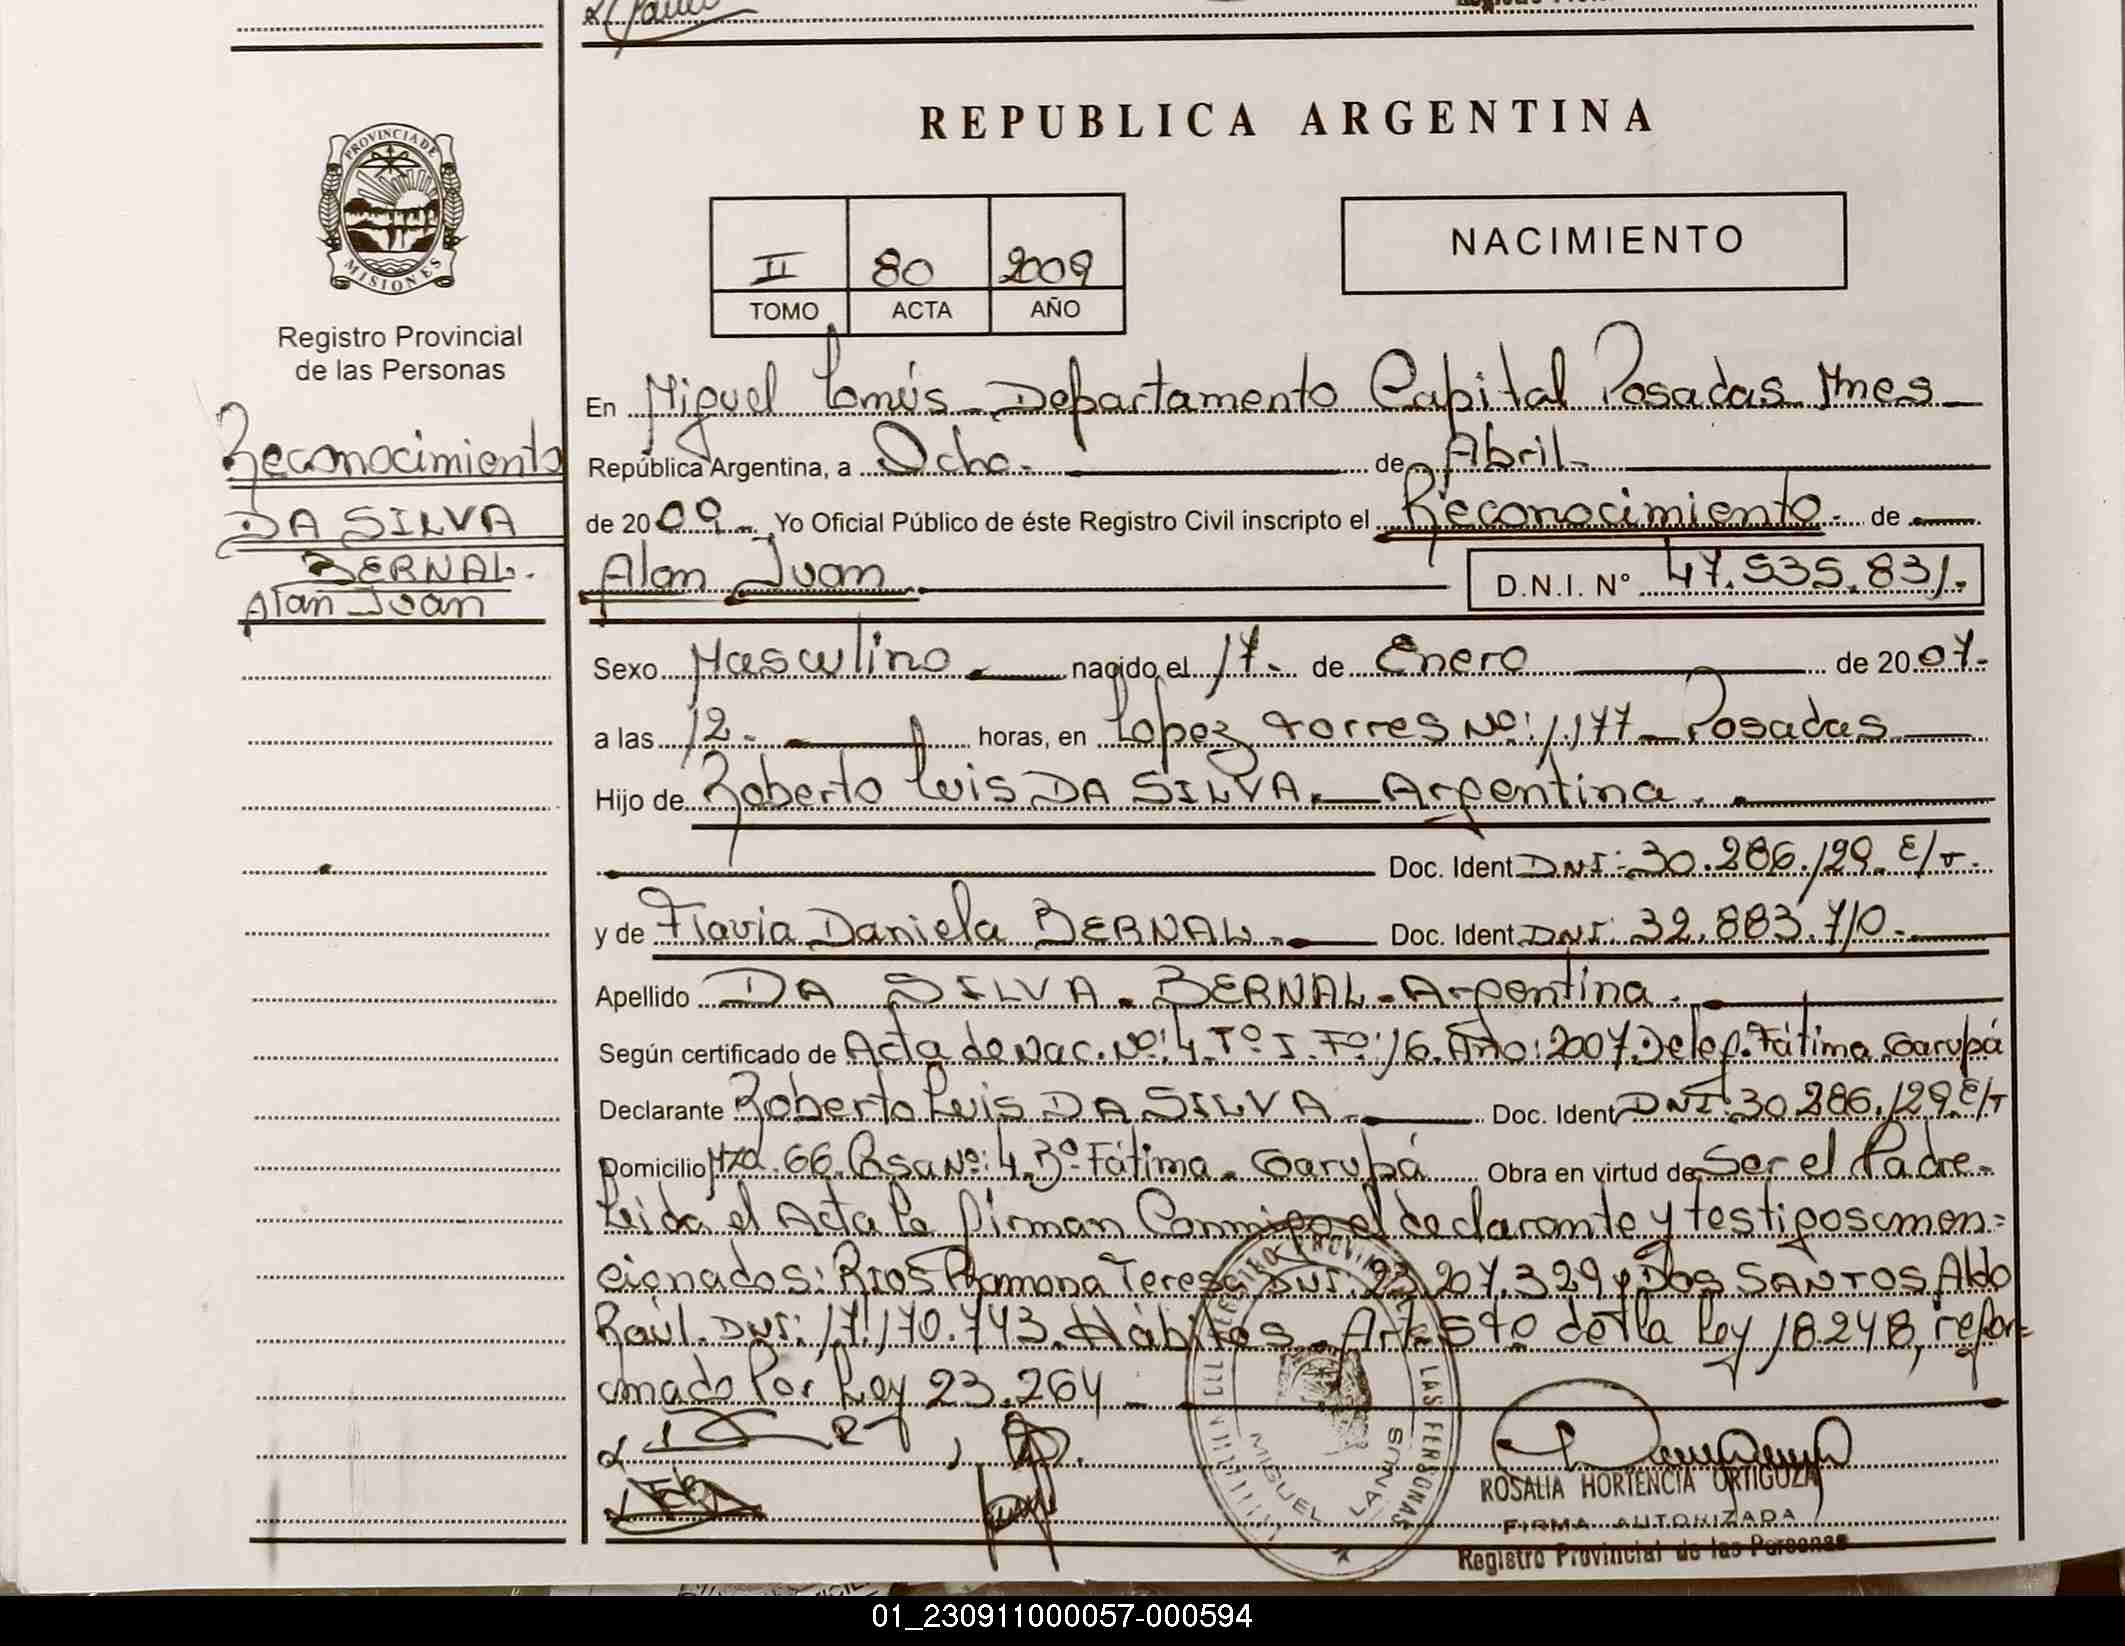 REPUBLICA ARGENTINA
PROVINCIA DE MISIONES
II 80 2009
TOMO ACTA AÑO
NACIMIENTO
Registro Provincial
de las Personas
Reconocimiento
DA SILVA
BERNAL.
Alan Juan
En Miguel Lanús Departamento Capital Posadas Mnes
República Argentina, a Ocho. de Abril.
de 2009. Yo Oficial Público de éste Registro Civil inscripto el Reconocimiento. de
Alan Juan D.N.I. Nº 47.535.831.
Sexo Masculino nacido el 17. de Enero de 2007.
a las 12. horas, en Lopez torres Nº: 1.177 Posadas
Hijo de Roberto Luis DA SILVA. Argentina.
Doc. Ident DNI: 30.286.129. E/T.
y de Flavia Daniela BERNAL. Doc. Ident DNI: 32.883.710.
Apellido DA SILVA. BERNAL. Argentina.
Según certificado de Acta de Nac. Nº: 4. Tº I. Fº: 16. Año: 2007. Deleg. Fátima Garupá
Declarante Roberto Luis DA SILVA. Doc. Ident DNI: 30.286.129. E/T
Domicilio Mzd. 66. Csa Nº: 4. Bº Fátima. Garupá Obra en virtud de Ser el Padre.
Leida el Acta la firman Conmigo el declarante y testigos men=
cionados: RIOS Ramona Teresa DNI. 23.207.329 y DOS SANTOS Aldo
Raúl. DNI: 17.170.743. Hábiles. Art. 5to de la Ley 18.248, refor=
mado Por Ley 23.264
REGISTRO PROVINCIAL DE LAS PERSONAS
MIGUEL LANUS
ROSALIA HORTENCIA ORTIGOZA
FIRMA AUTORIZADA
Registro Provincial de las Personas
01_230911000057-000594